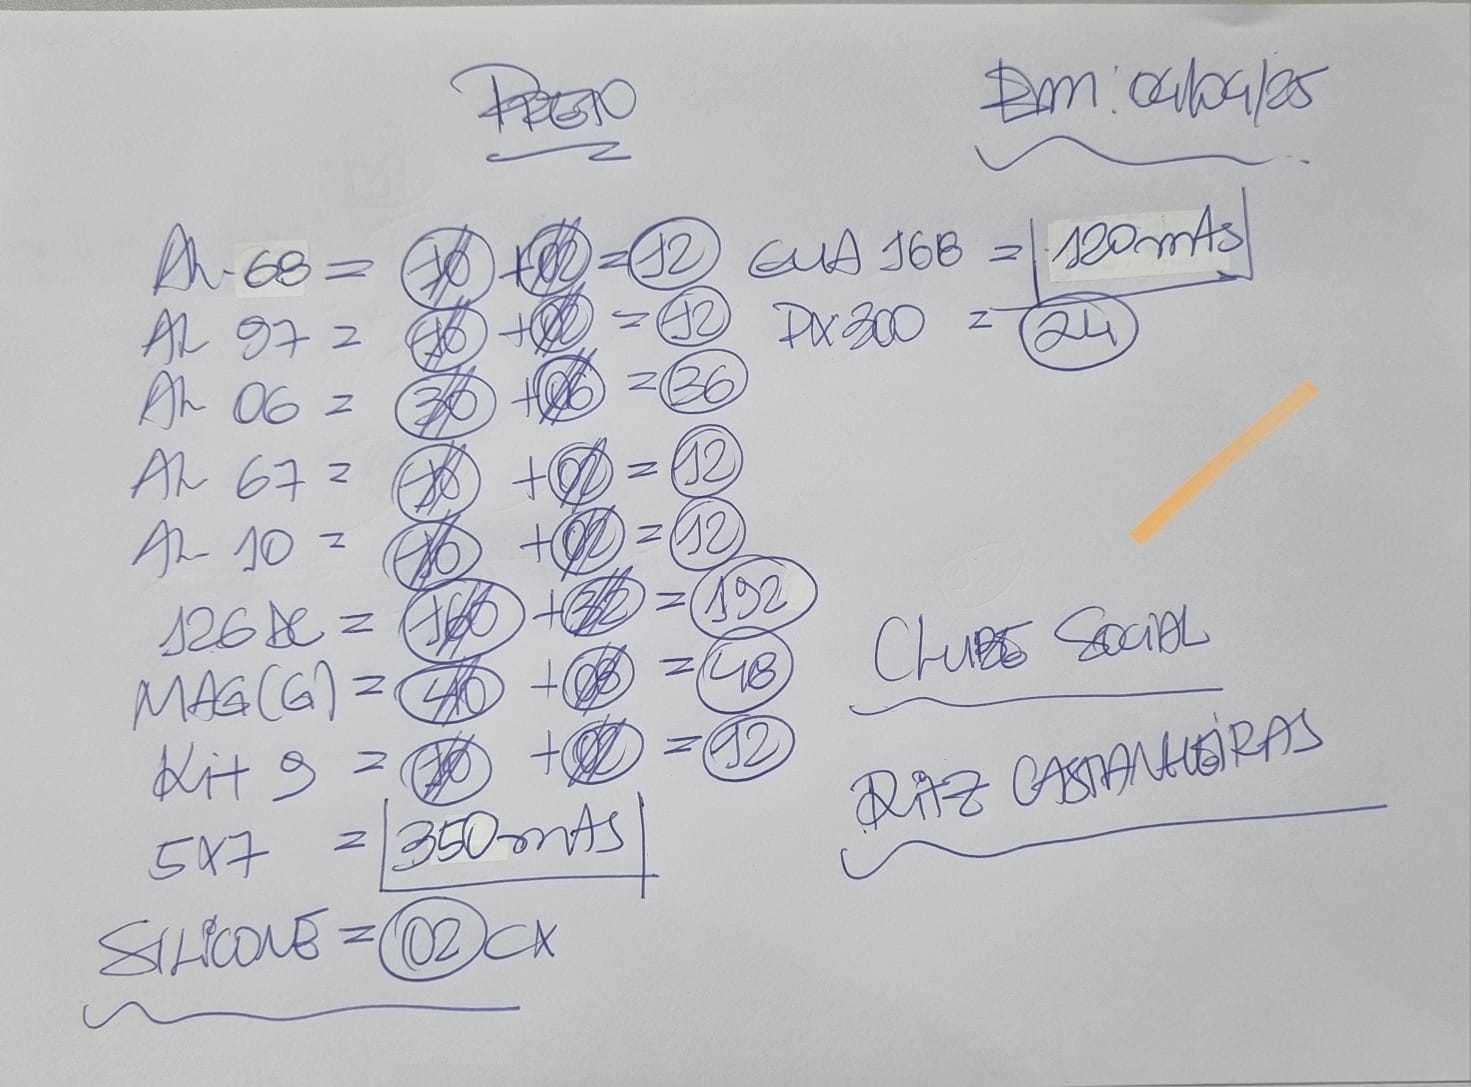 PRETO
Em: 04/04/25
AL 68 = 10 + 02 = 12
GUA 168 = 120 mts
AL 97 = 10 + 02 = 12
PX 300 = 24
AL 06 = 30 + 06 = 36
AL 67 = 10 + 02 = 12
AL 10 = 10 + 02 = 12
126 AC = 160 + 32 = 192
MAG(G) = 40 + 08 = 48
Kit 9 = 10 + 02 = 12
5x7 = 350 mts
SILICONE = 02 CX
CLUBE SOCIAL
RAZ CASTANHEIRAS